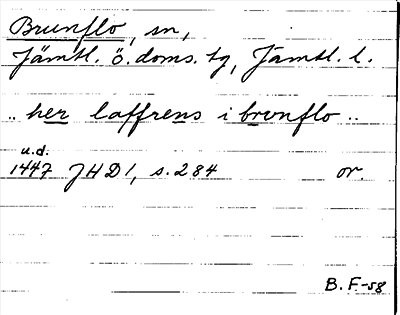 Brunflo, sn,
Jämtl. ö. doms. tg, Jämtl. l.
.. her laffrens i brvnflo ..
u.d.
1447 JHD 1, s. 284 or.
B. F-58